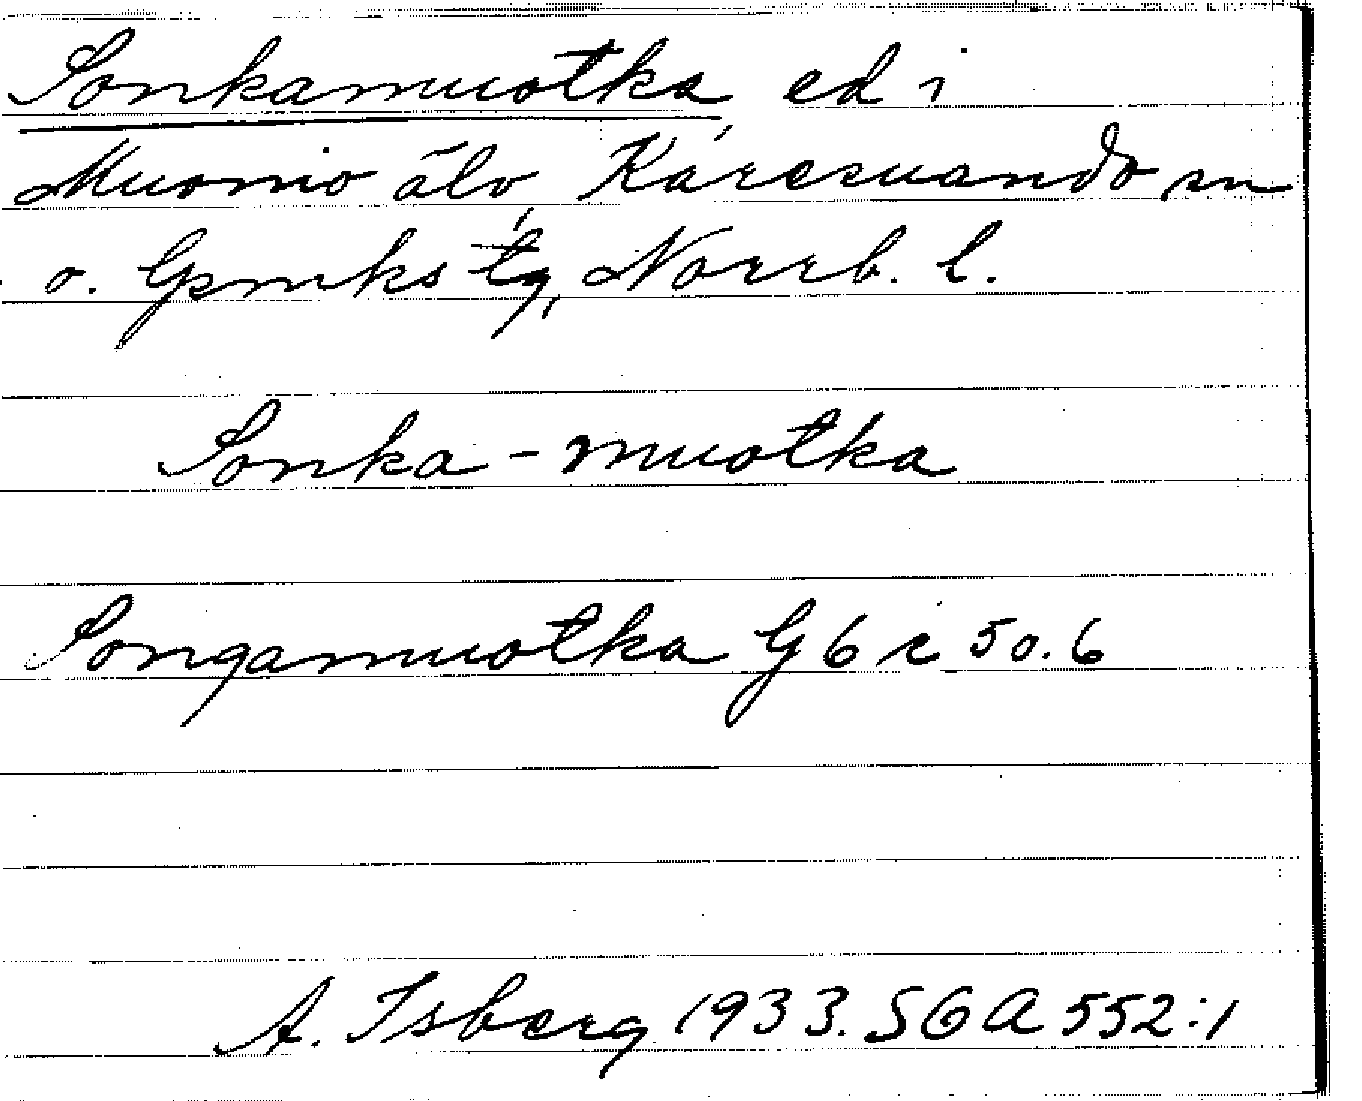 Sonkamuotka ed i
Muonio älv, Karesuando sn
o. lpmks tg, Norrb. l.
Sonka-muotka
Songamuotka G 6 c 50.6
A. Isberg 1933. SGA 552:1